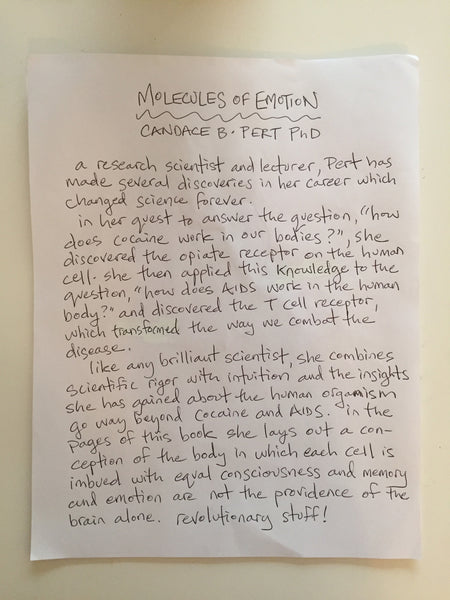 MOLECULES OF EMOTION
CANDACE B. PERT PhD
a research scientist and lecturer, Pert has
made several discoveries in her career which
changed science forever.
in her quest to answer the question, "how
does cocaine work in our bodies?", she
discovered the opiate receptor on the human
cell. she then applied this knowledge to the
question, "how does AIDS work in the human
body?" and discovered the T cell receptor,
which transformed the way we combat the
disease.
like any brilliant scientist, she combines
scientific rigor with intuition and the insights
she has gained about the human organism
go way beyond cocaine and AIDS. in the
pages of this book she lays out a con-
ception of the body in which each cell is
imbued with equal consciousness and memory
and emotion are not the providence of the
brain alone. revolutionary stuff!